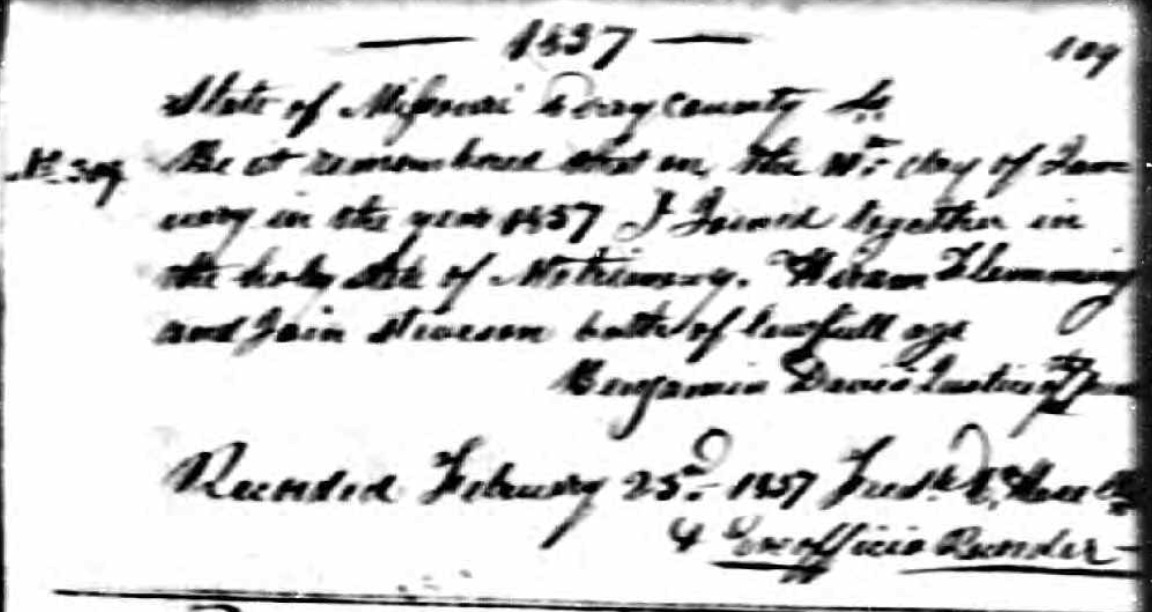 — 1837 — 109
State of Missouri Perry County Ss
No. 309 Be it remembered that on the day of Jan
uary in the year 1837 I Joined together in
the holy state of Matrimony. Hiram Flemming
and Jain both of lawfull age
Benjamin Davis Justice of Peace
Recorded February 25th 1837 Fredk C. Hase Clk
& Exofficio Recorder